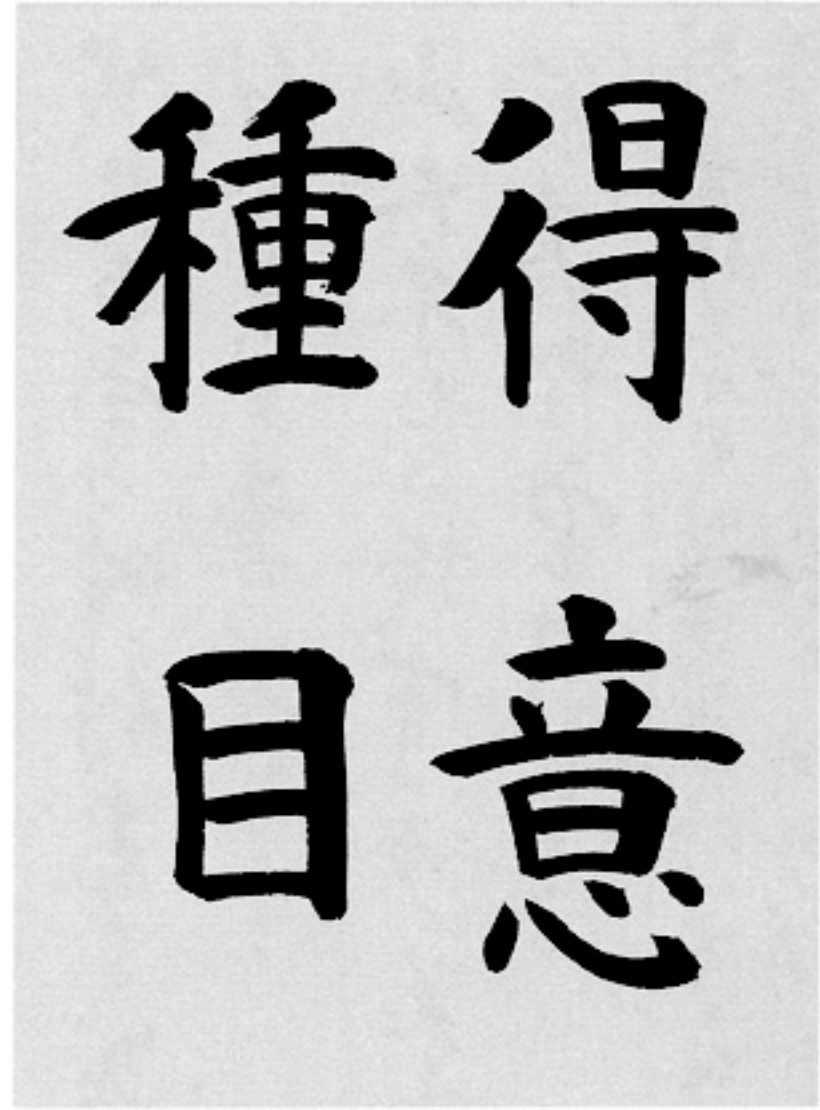 得意
種目